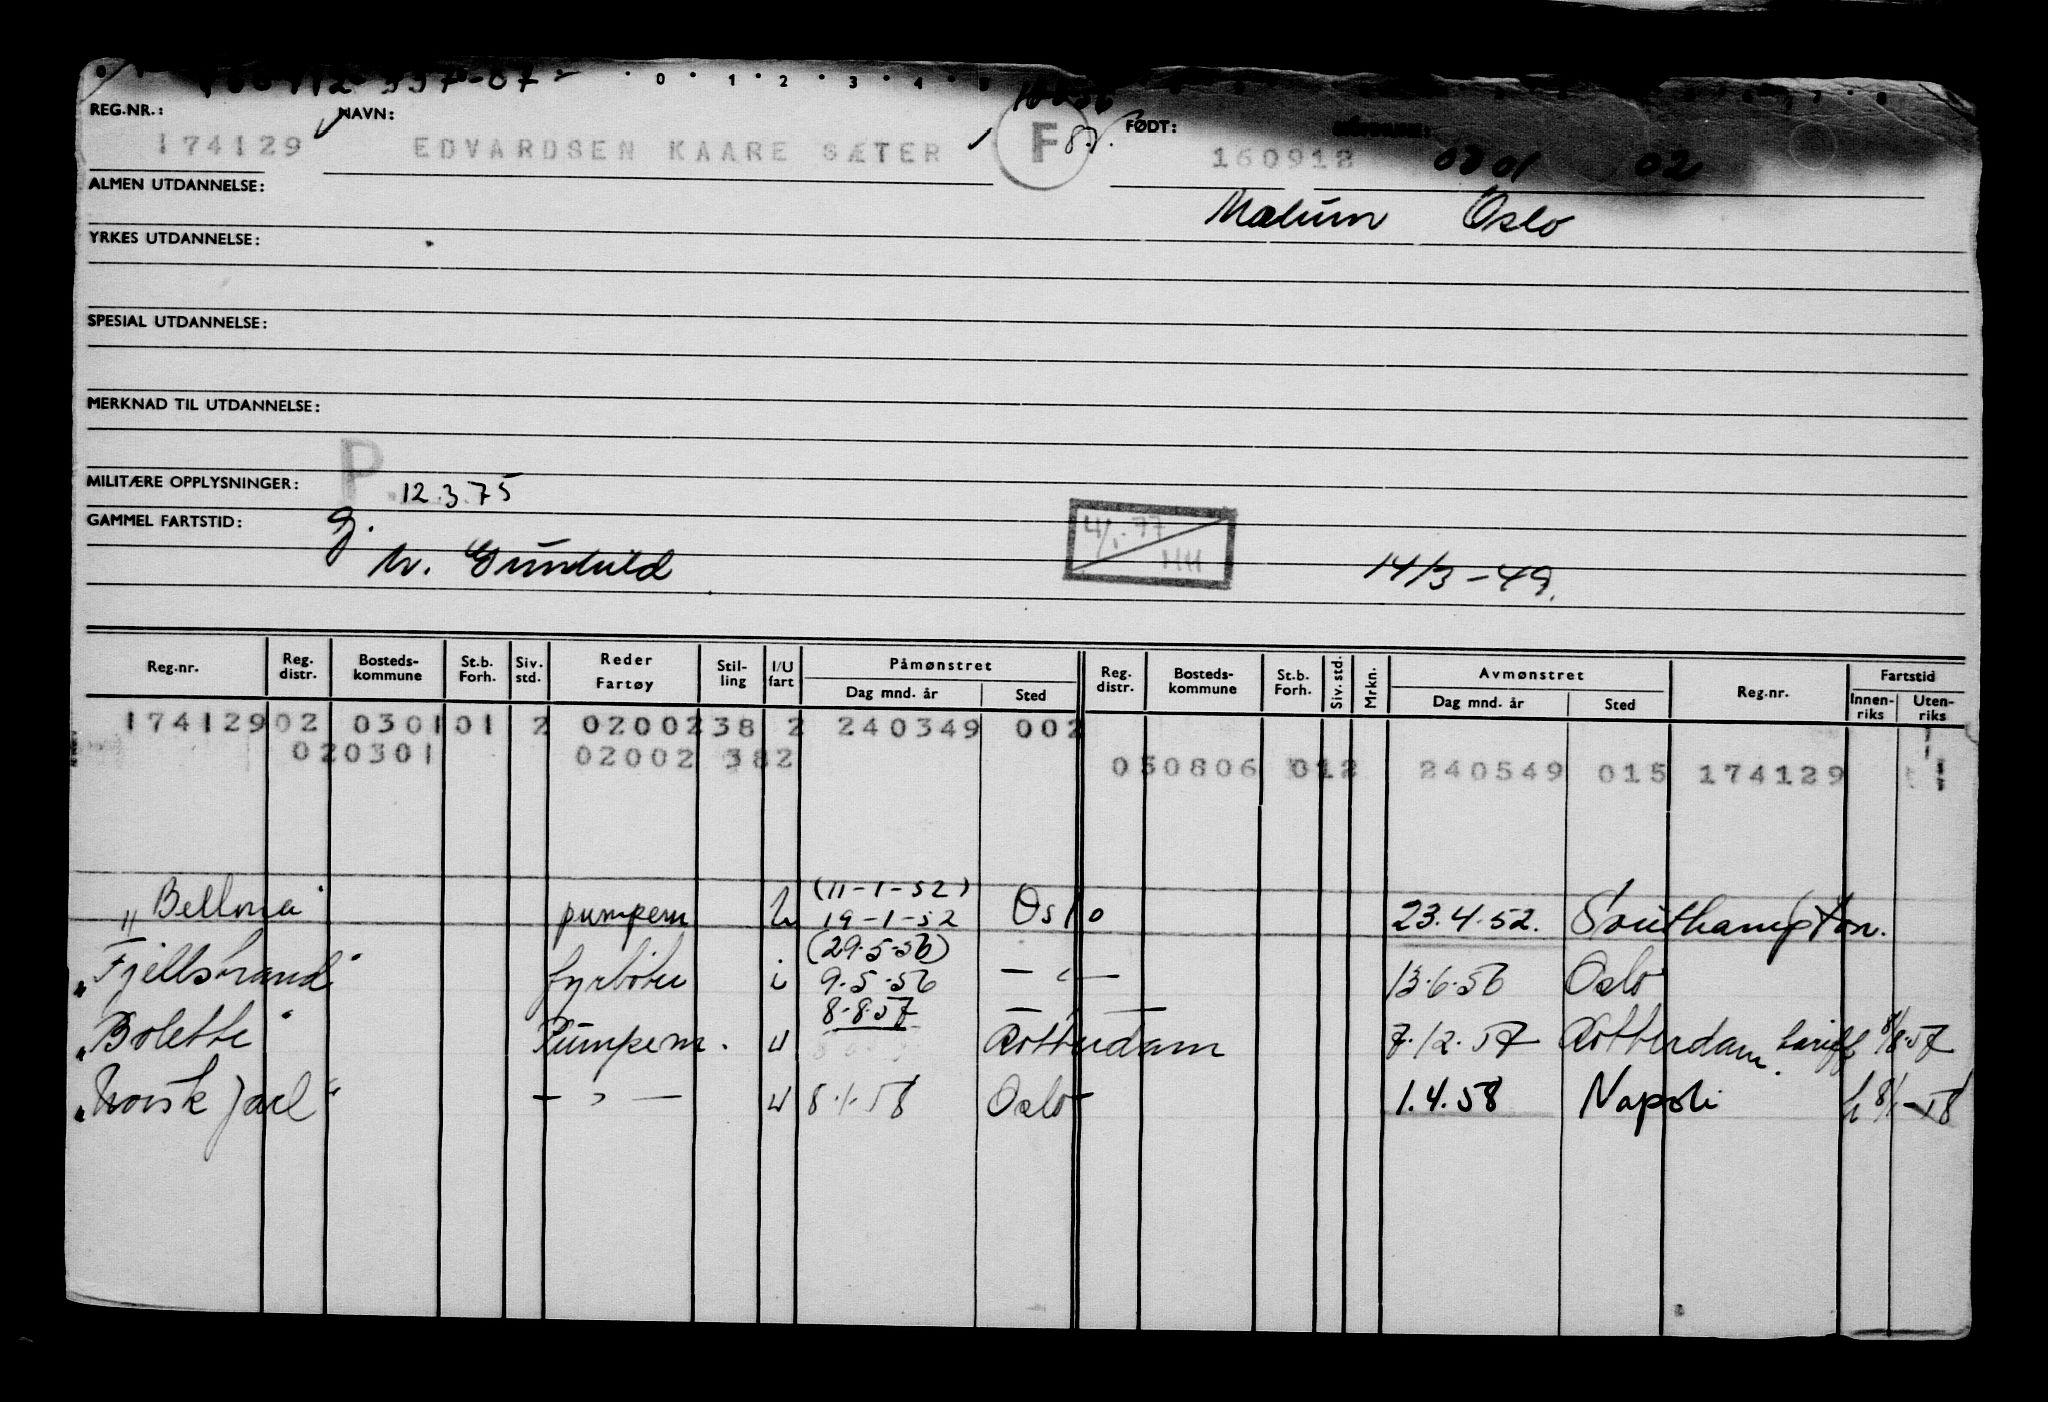 REG.NR.: NAVN: FØDT:
174129 EDVARDSEN KAARE SÆTER F 160912 0301 02
ALMEN UTDANNELSE: Mælum Oslo
YRKES UTDANNELSE:
SPESIAL UTDANNELSE:
MERKNAD TIL UTDANNELSE:
MILITÆRE OPPLYSNINGER: P. 12.3.75
GAMMEL FARTSTID: g. 4/1.-77
M. Gunhild HH 14/3-49.
Reg.nr. Reg. distr. Bosteds-kommune St.b. Forh. Siv. std. Reder Fartøy Stil-ling I/U fart Påmønstret Dag mnd. år Sted Reg. distr. Bosteds-kommune St.b. Forh. Siv. std. Mrkn. Avmønstret Dag mnd. år Sted Reg.nr. Fartstid Innen-riks Uten-riks
174129 02 0301 01 2 02002 38 2 240349 002
020301 02002 382 030806 012 240549 015 174129
(11-1-52)
"Bellona" pumpem u 19-1-52 Oslo 23.4.52. Southampton.
(29.5.56)
"Fjellstrand" fyrbøter i 9.5.56 — " — 13.6.56 Oslo
8.8.57
"Bolette" Pumpem. u Rotterdam 7.12.57 Rotterdam. tariff 8/8.57
"Norsk Jarl" — " — u 8.1.58 Oslo 1.4.58 Napoli h 8/1-58